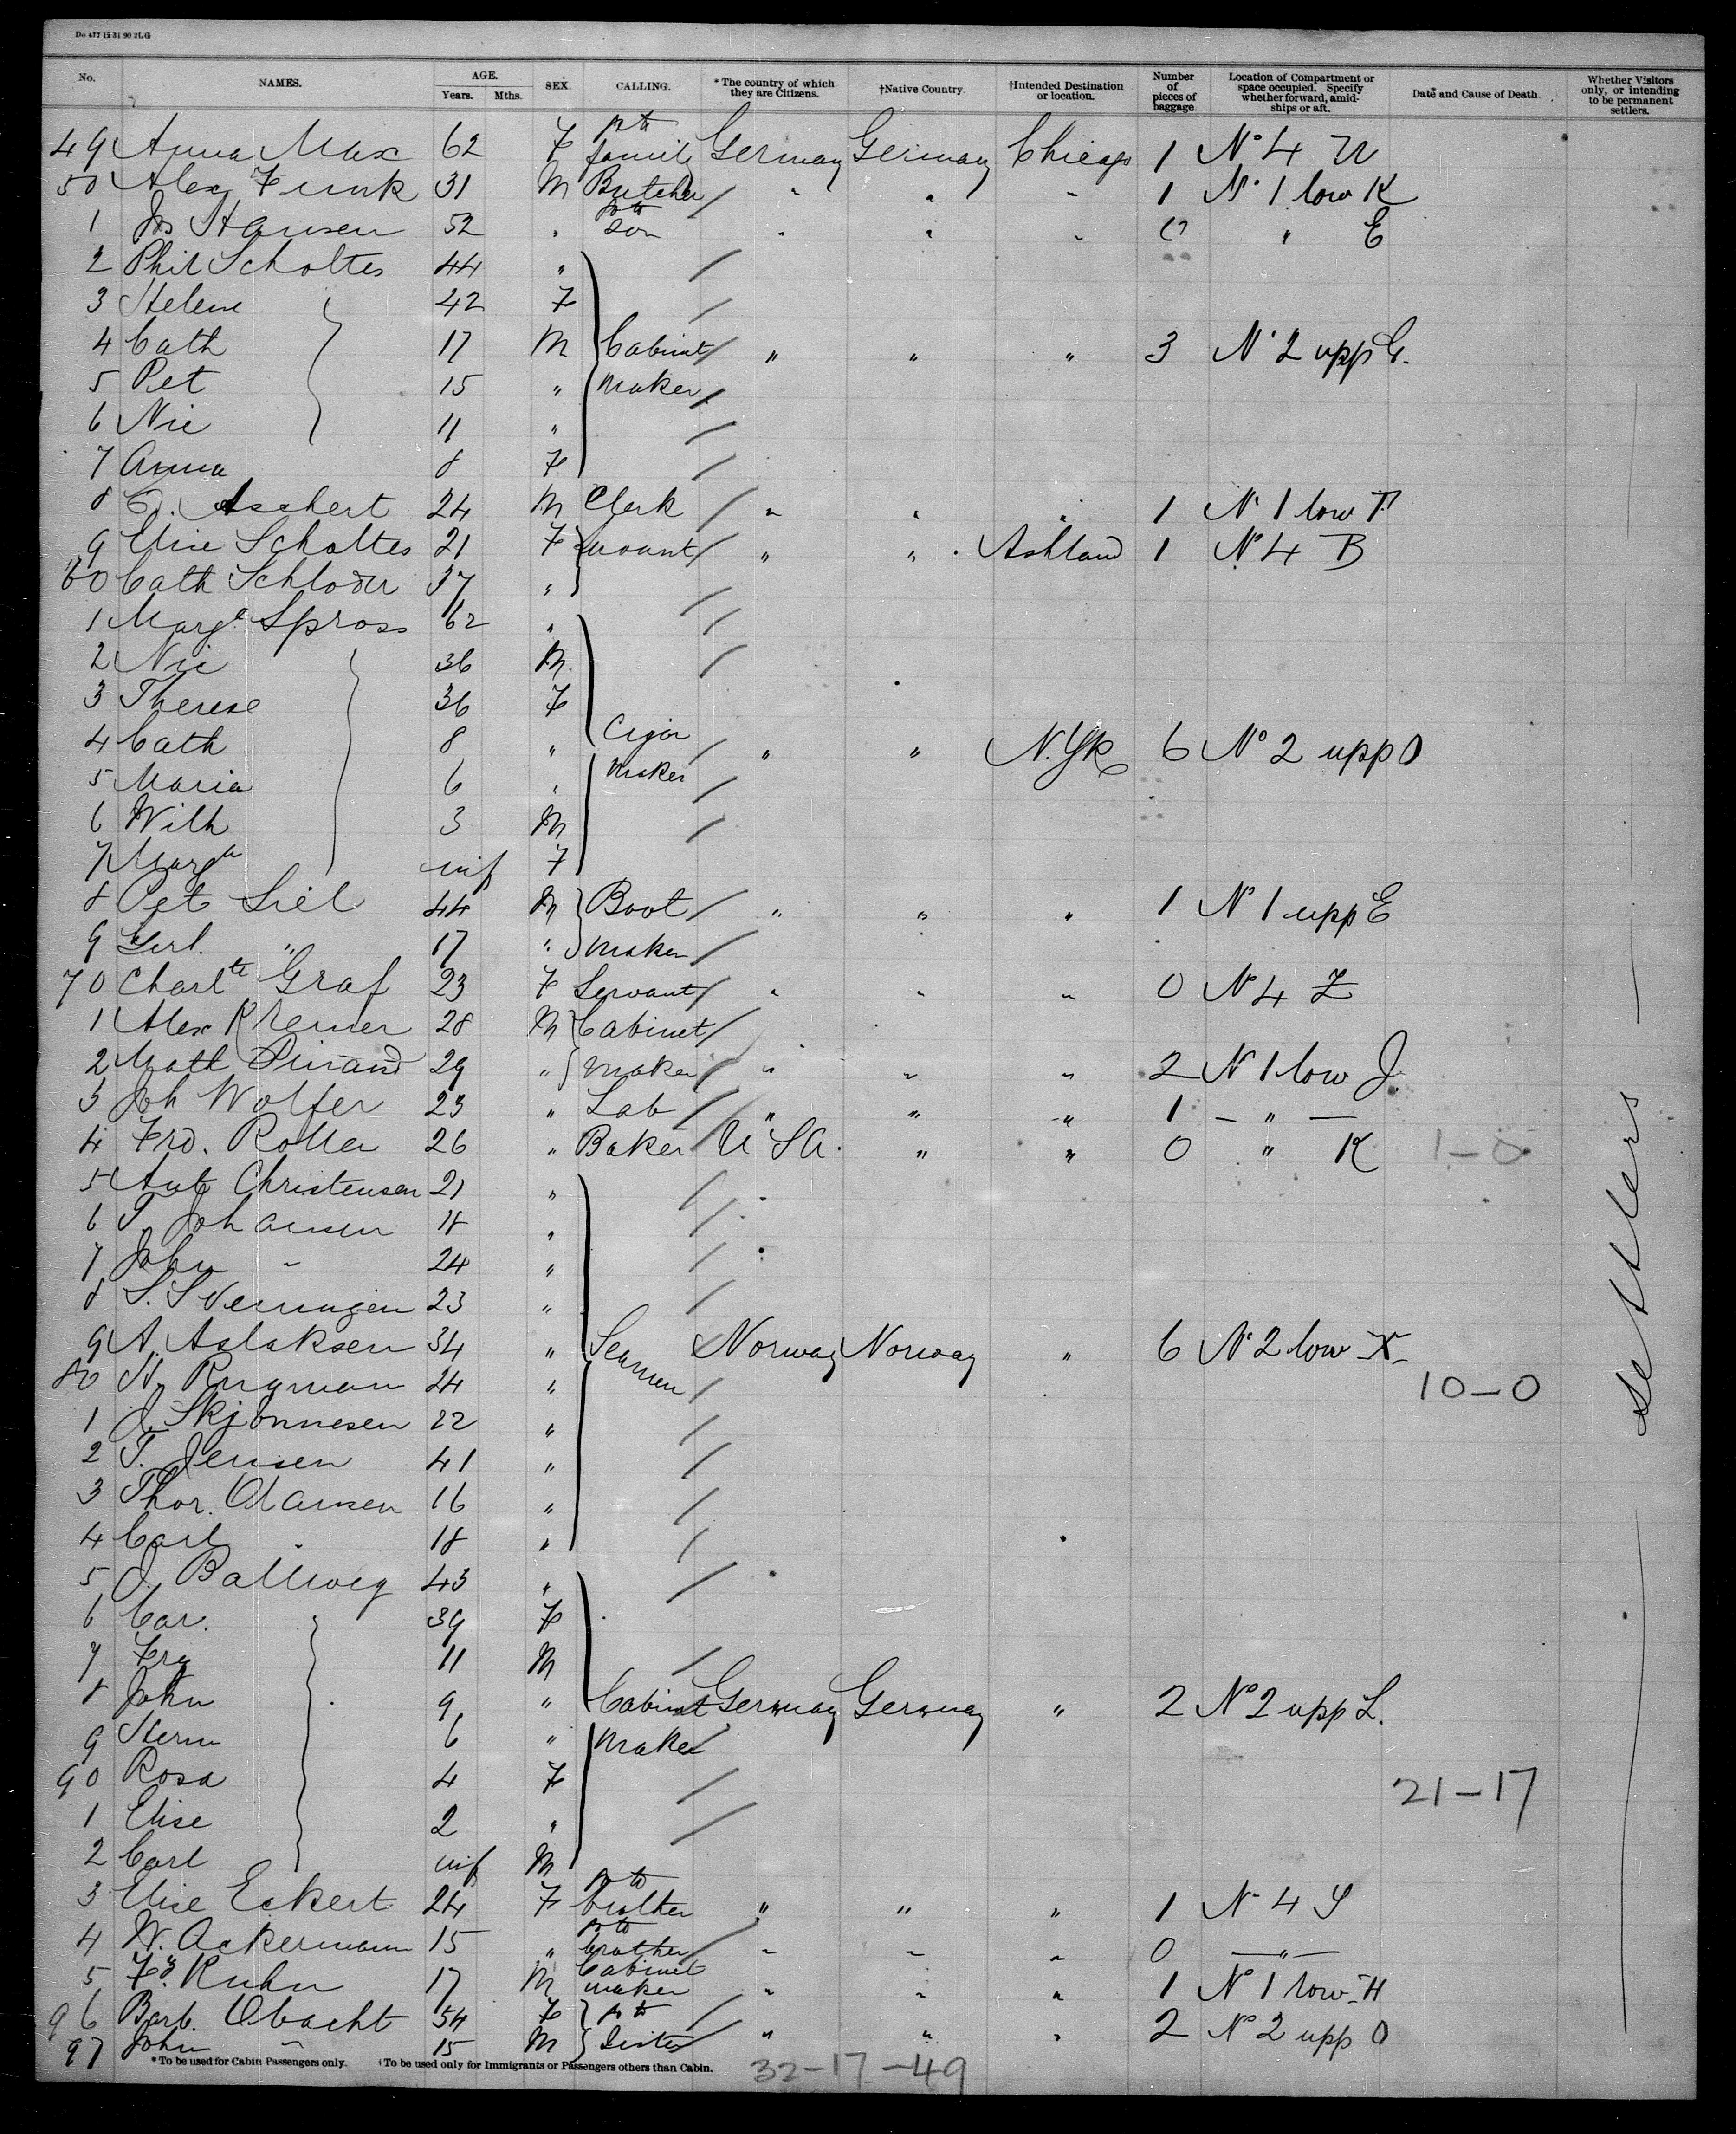 Do 477 12 31 90 2L.G
No. NAMES. AGE. Years. Mths. SEX. CALLING. * The country of which they are Citizens. †Native Country. †Intended Destination or location. Number of pieces of baggage. Location of Compartment or space occupied. Specify whether forward, amidships or aft. Date and Cause of Death. Whether Visitors only, or intending to be permanent settlers.
49 Anna Max 62 F pr to family Germany Germany Chicago 1 No 4 U
50 Alex Funk 31 M Butcher " " " 1 No 1 low K
1 Jos Hansen 52 " pr to son " " " 0 " E
2 Phil Scholtes 44 "
3 Helene 42 F
4 Cath 17 M Cabinet " " " 3 No 2 upp G.
5 Pet 15 " maker
6 Nic 11 "
7 Anna 8 F
8 Aschert 24 M Clerk " " " 1 No 1 low
9 Elise Scholtes 21 F " " Ashland 1 No 4 B
60 Cath Schloder 37 "
1 Marga Spross 62 "
2 Nic 36 M
3 Therese 36 F
4 Cath 8 " Cigar " " N.Yk 6 No 2 upp O
5 Maria 6 " maker
6 Wilh 3 M
7 Marga inf F
8 Pet Siel 44 M Boot " " " 1 No 1 upp E
9 " 17 " maker
70 Charlte Graf 23 F Servant " " " 0 No 4 Z
1 Alex Kremer 28 M Cabinet
2 Math 29 " maker " " " 2 No 1 low J.
3 Joh Wolfer 23 " Lab " " " 1 — " —
4 Frd. Roller 26 " Baker U S A. " " 0 " K 1-0
5 Ant Christensen 21 "
6 T. Johansen 18 "
7 John " 24 "
8 S. 23 "
9 A. Aslaksen 34 " Seamen Norway Norway " 6 No 2 low X
80 H. 24 " 10-0
1 J. Skjonnesen 22 "
2 T. Jensen 41 "
3 Thor. 16 "
4 Carl " 18 "
5 J. Ballweg 43 "
6 Car. 39 F
7 Frz 11 M
8 John 9 " Cabinet Germany Germany " 2 No 2 upp L.
9 Herm 6 " maker
90 Rosa 4 F 21-17
1 Elise 2 "
2 Carl inf M
3 Elise Eckert 24 F pr to brother " " " 1 No 4 S
4 W. Ackermann 15 " pr to brother " " " 0 — " —
5 Fz. Kuhn 17 M Cabinet maker " " " 1 No 1 low H
96 Barb. Obacht 54 F pr to " " " 2 No 2 upp O
97 John " 15 M Sister
settlers
*To be used for Cabin Passengers only. †To be used only for Immigrants or Passengers others than Cabin.
32-17-49